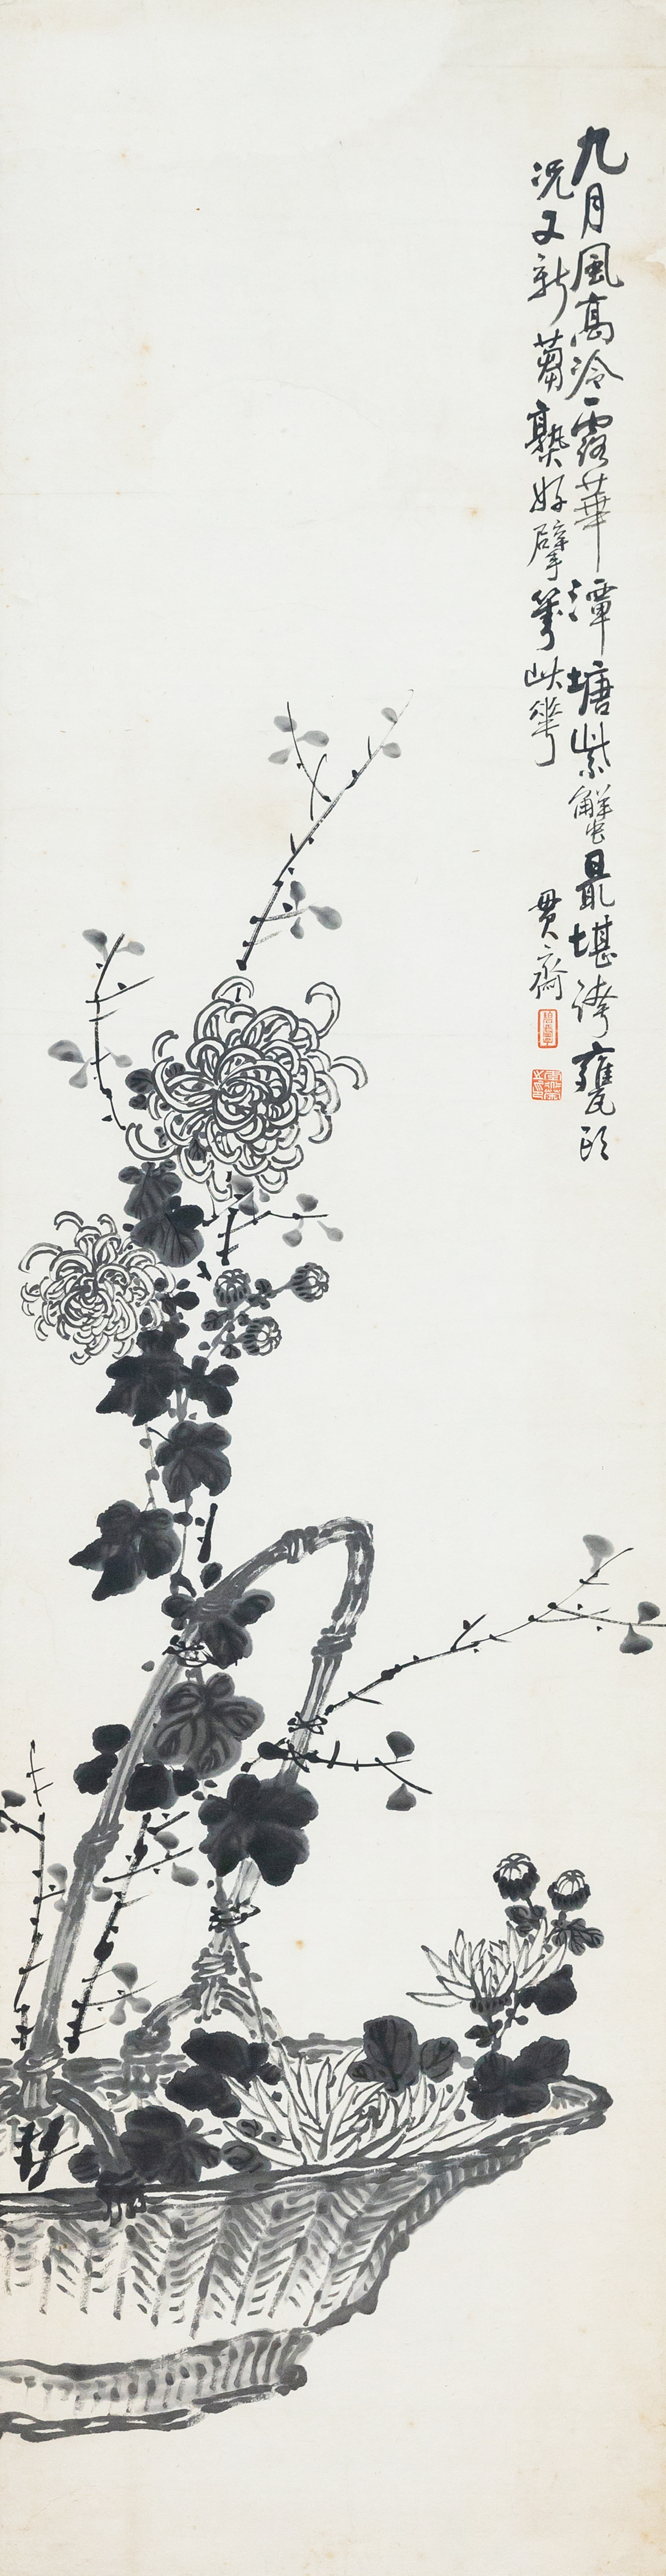 九月風高冷露華潭塘紫蟹最堪誇甕頭
況又新蒭熟好擘箋此花
貫齋